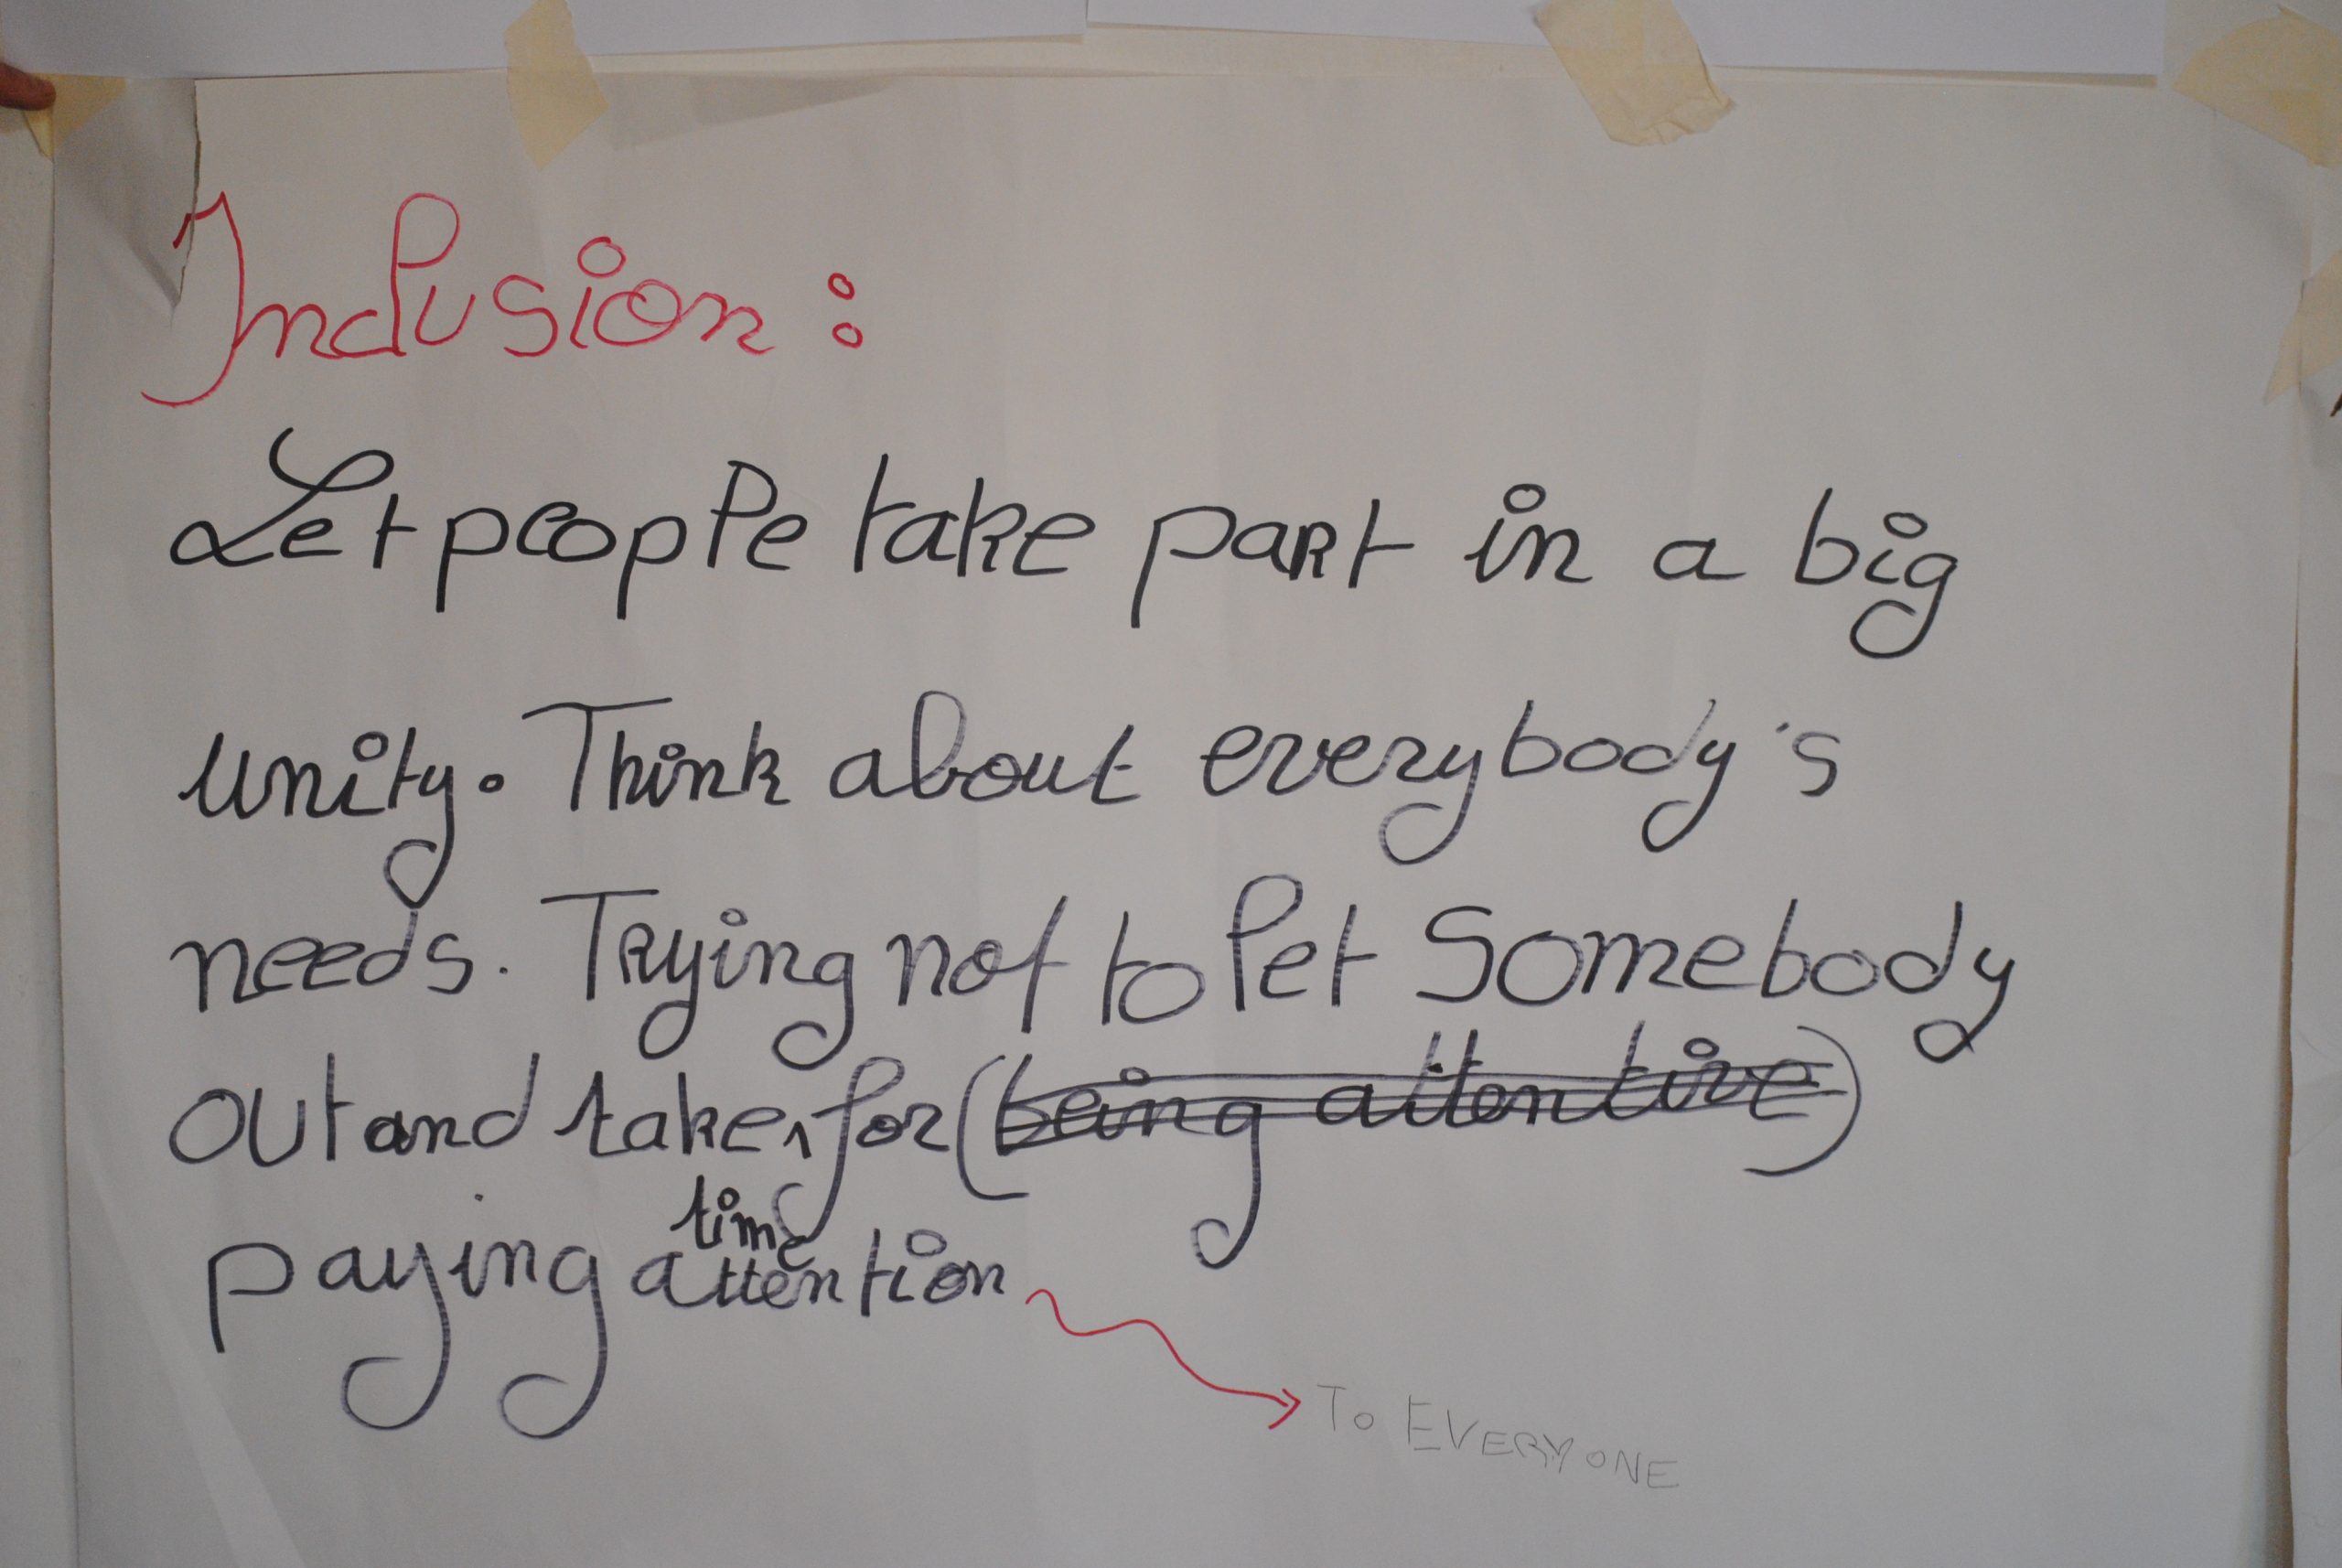 Inclusion :
Let people take part in a big
unity. Think about everybody's
needs. Trying not to let Somebody
out and take time for (being attentive)
paying attention
To EVERYONE